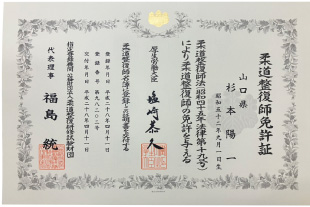 柔道整復師免許証
山口県
杉本陽一
昭和五十二年九月一日生
柔道整復師法(昭和四十五年法律第十九号)
により柔道整復師の免許を与える
厚生労働大臣
塩崎恭久
柔道整復師名簿に登録し証明書を交付する
登録年月日 平成二十八年四月十一日
交付年月日 平成二十八年四月十一日
指定登録機関 公益財団法人柔道整復研修試験財団
代表理事
福島統